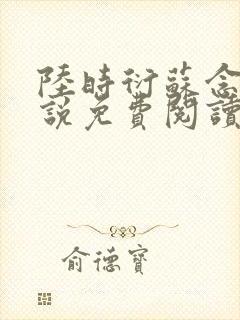 陸時衍蘇念
說免費閱讀
俞德寶